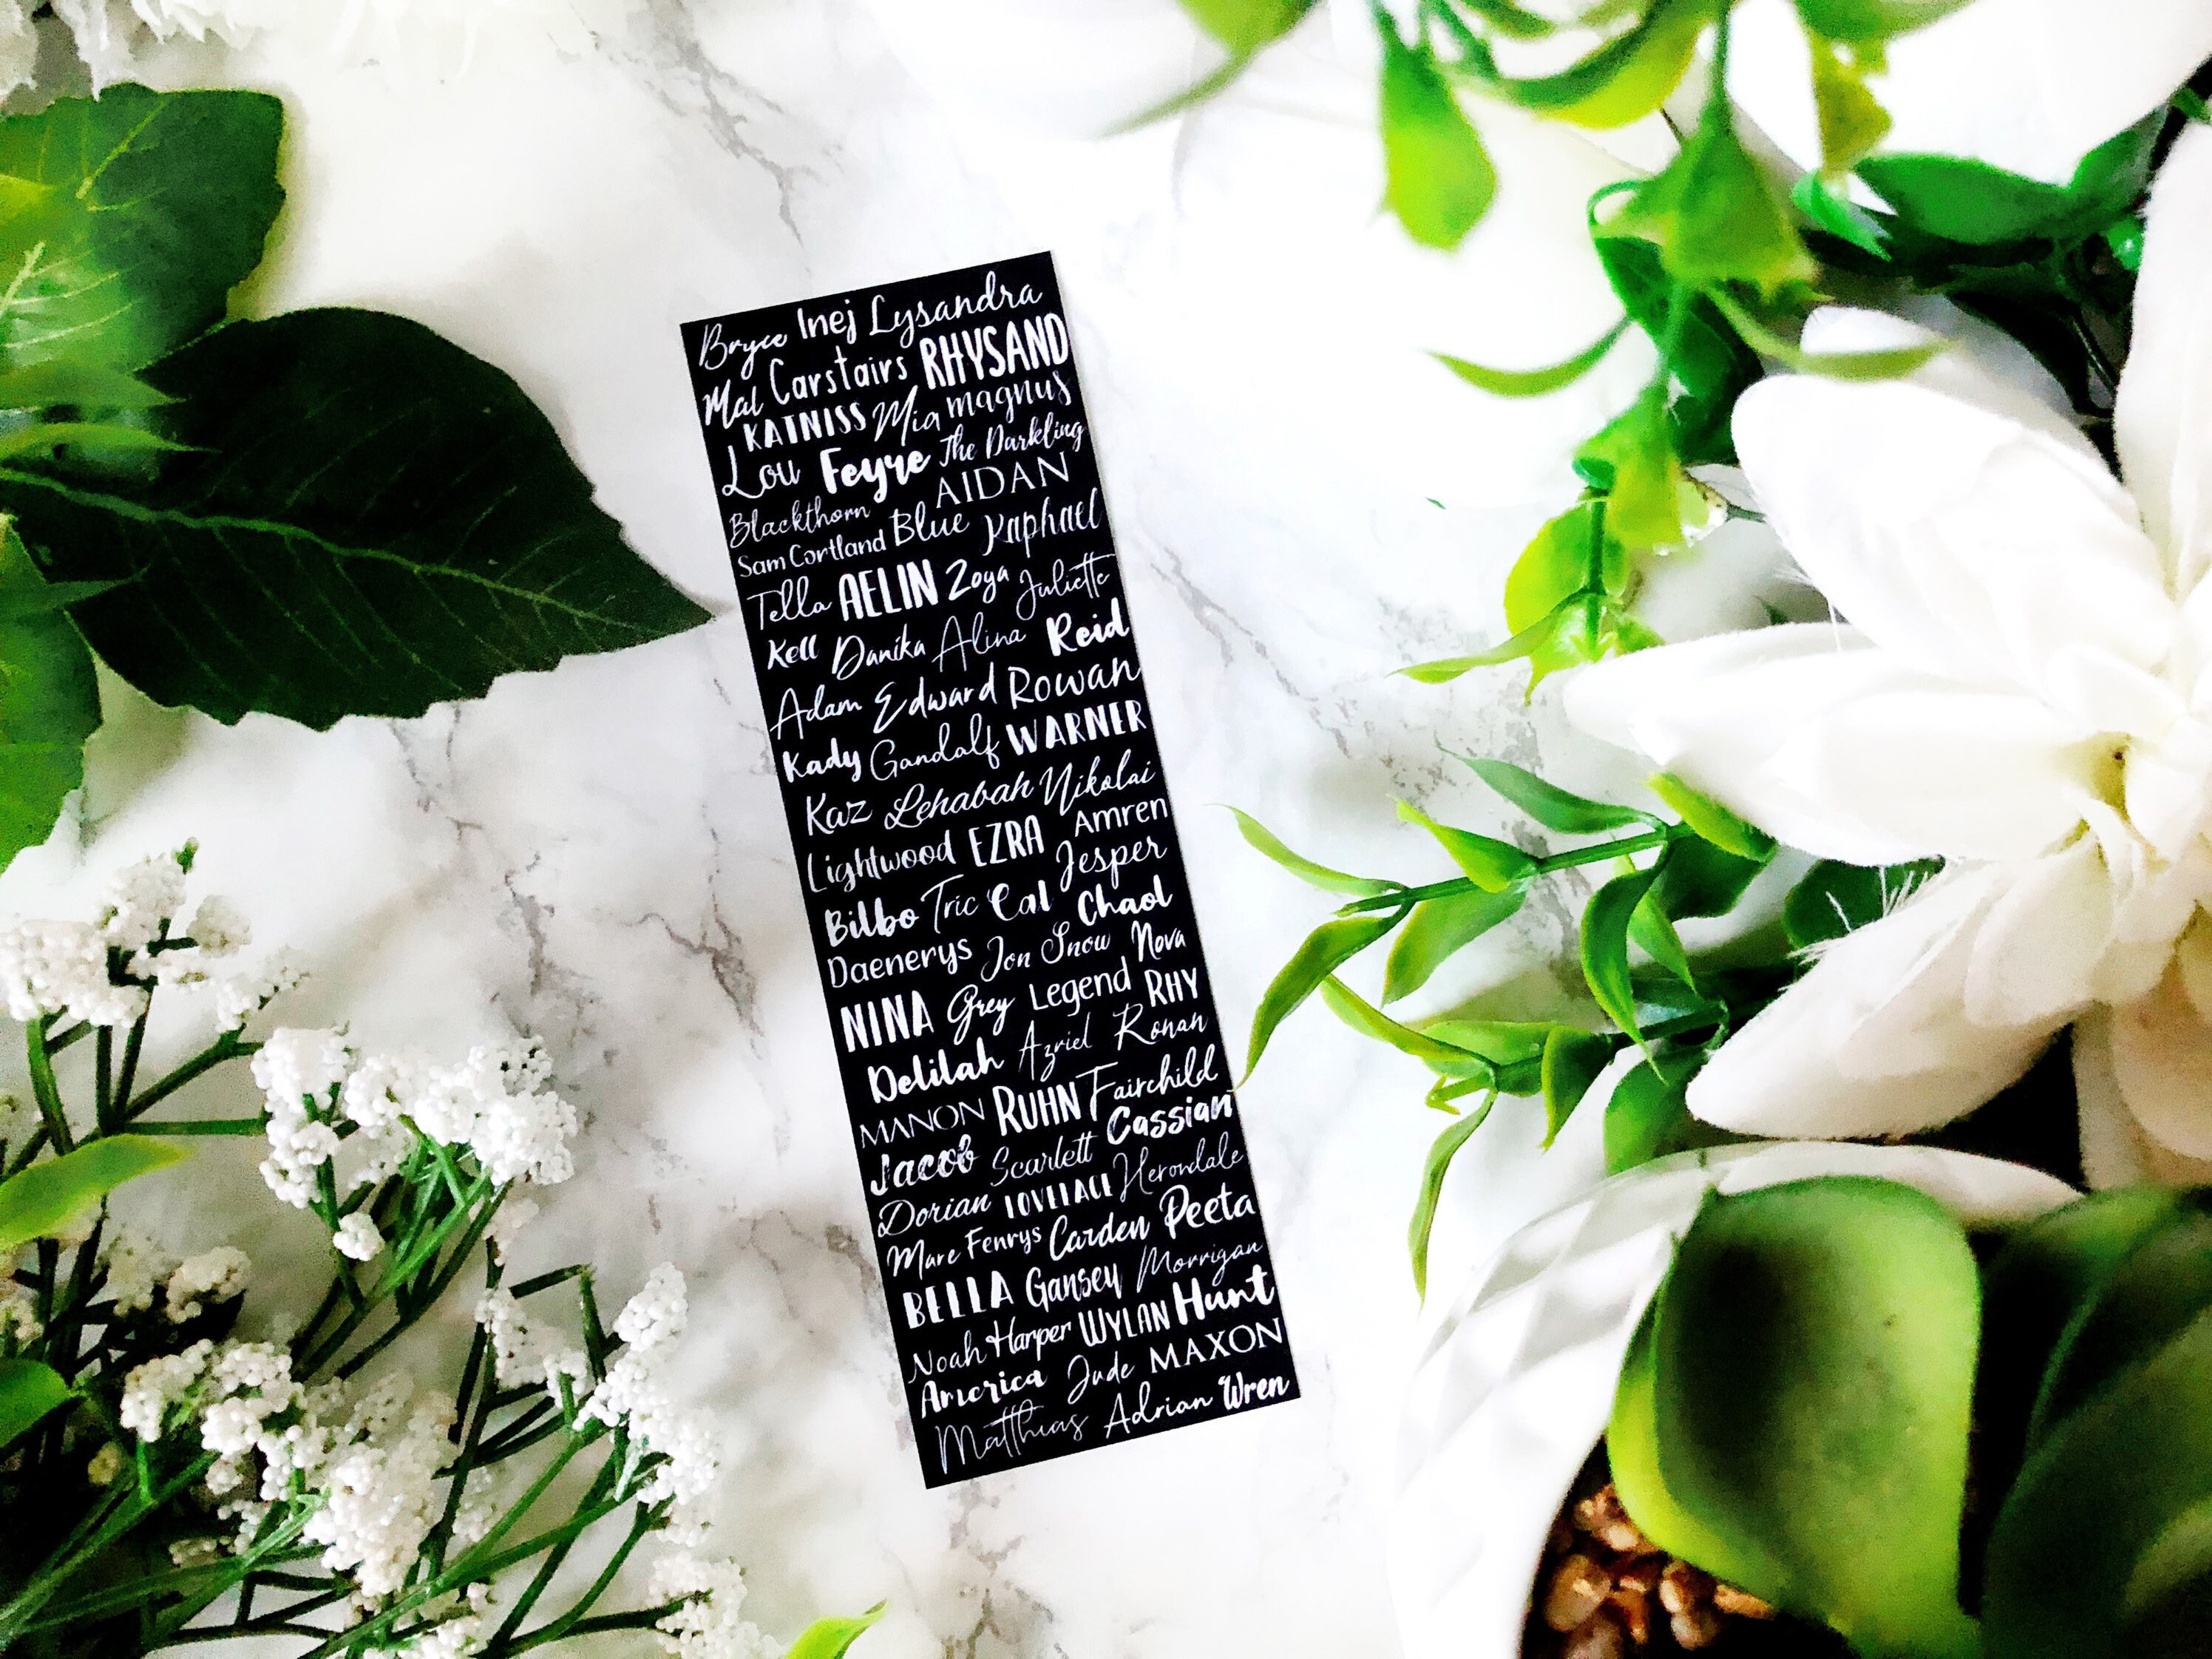 Bryce Inej Lysandra
Mal Carstairs RHYSAND
KATNISS Mia magnus
Lou Feyre The Darkling
Blackthorn AIDAN
Sam Cortland Blue Raphael
Tella AELIN Zoya Juliette
Kell Danika Alina Reid
Adam Edward Rowan
Kady Gandalf WARNER
Kaz Lehabah Nikolai
Lightwood EZRA Amren
Bilbo Tric Cal Jesper
Daenerys Jon Snow Chaol
NINA Grey Legend Nova
Delilah Azriel Ronan RHY
MANON RUHN Fairchild
Jacob Scarlett Cassian
Dorian LOVELACE Herondale
Mare Fenrys Carden Peeta
BELLA Gansey Morrigan
Noah Harper WYLAN Hunt
America Jude MAXON
Matthias Adrian Wren